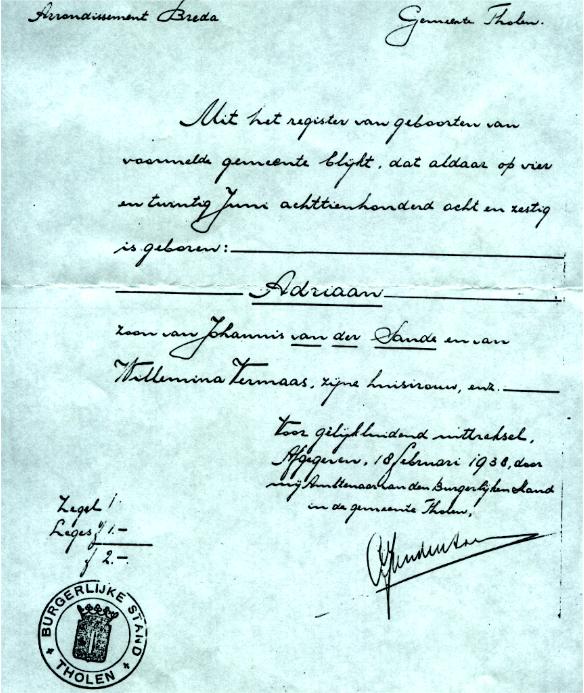 Arrondissement Breda
Gemeente Tholen.
Uit het register van geboorten van
voormelde gemeente blijkt, dat aldaar op vier
en twintig Juni achttienhonderd acht en zestig
is geboren:
Adriaan
zoon van Johannis van der Sande en van
Willemina Vermaas, zijne huisvrouw, enz.
Voor gelijkluidend uittreksel,
Afgegeven, 18 februari 1938, door
mij Ambtenaar van den Burgerlijken Stand
in de gemeente Tholen,
Zegel 1.
Leges ƒ 1.-
ƒ 2.-
BURGERLIJKE STAND
THOLEN